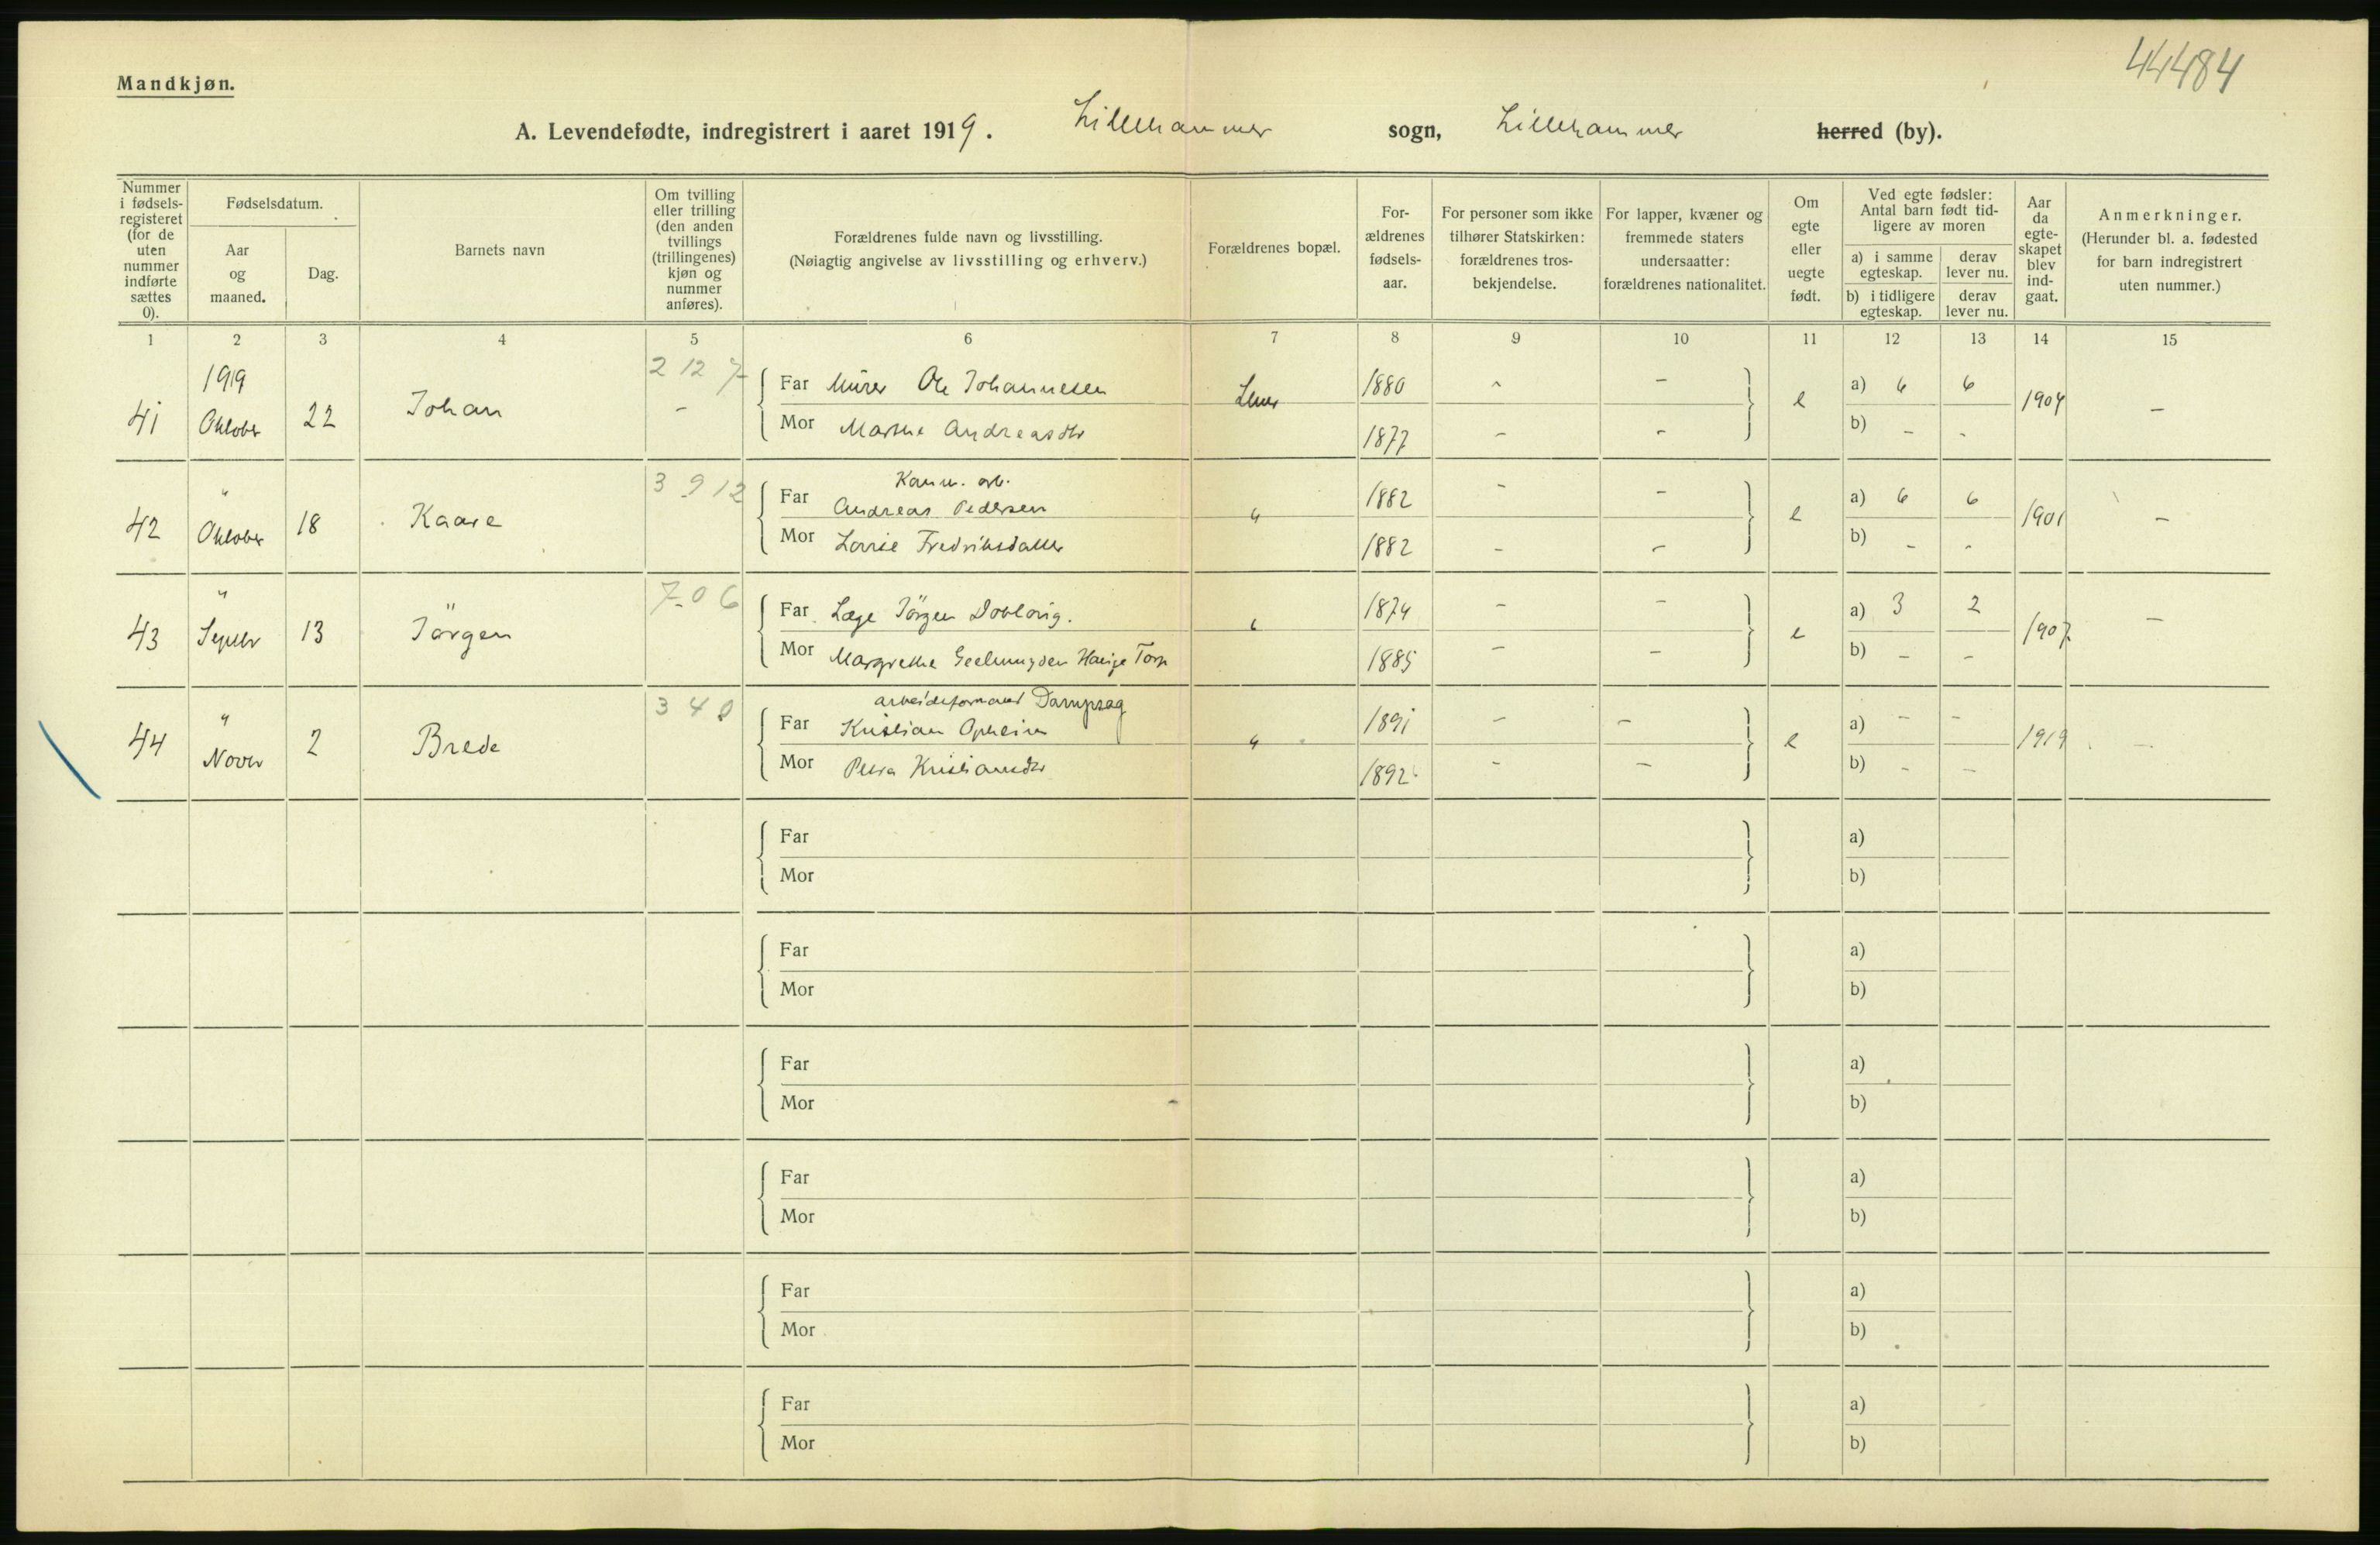 44484
Mandkjøn.
A. Levendefødte, indregistrert i aaret 1919. Lillehammer sogn, Lillehammer herred (by).
Nummer i fødsels-registeret (for de uten nummer indførte sættes 0).
Fødselsdatum.
Aar og maaned.
Dag.
Barnets navn
Om tvilling eller trilling (den anden tvillings (trillingenes) kjøn og nummer anføres).
Forældrenes fulde navn og livsstilling.
(Nøiagtig angivelse av livsstilling og erhverv.)
Forældrenes bopæl.
For-ældrenes fødsels-aar.
For personer som ikke tilhører Statskirken: forældrenes tros-bekjendelse.
For lapper, kvæner og fremmede staters undersaatter: forældrenes nationalitet.
Om egte eller uegte født.
Ved egte fødsler: Antal barn født tid-ligere av moren
a) i samme egteskap.
derav lever nu.
b) i tidligere egteskap.
derav lever nu.
Aar da egte-skapet blev ind-gaat.
Anmerkninger.
(Herunder bl. a. fødested for barn indregistrert uten nummer.)
1 2 3 4 5 6 7 8 9 10 11 12 13 14 15
1919 2 12 7
41 Oktober 22 Johan - Far Murer Ole Johannesen 1880 - - e a) 6 6 1904 -
Mor Marthe Andreasdtr 1877 - - b) - -
" 3 9 12 Kom. arb.
42 Oktober 18 Kaare Far Andreas Pedersen " 1882 - - e a) 6 6 1901 -
Mor Fredriksdatter 1882 - - b) - -
" 7 0 6
43 Septbr 13 Jörgen Far Læge Jörgen " 1874 - - e a) 3 2 1907 -
Mor Margrethe 1885 - - b) - -
" 3 4 0 arbeidsformand Dampsag
44 Novbr 2 Brede Far Kristian Opheim " 1891 - - e a) - - 1919 -
Mor Petra Kristiansdtr 1892 - - b) - -
Far a)
Mor b)
Far a)
Mor b)
Far a)
Mor b)
Far a)
Mor b)
Far a)
Mor b)
Far a)
Mor b)